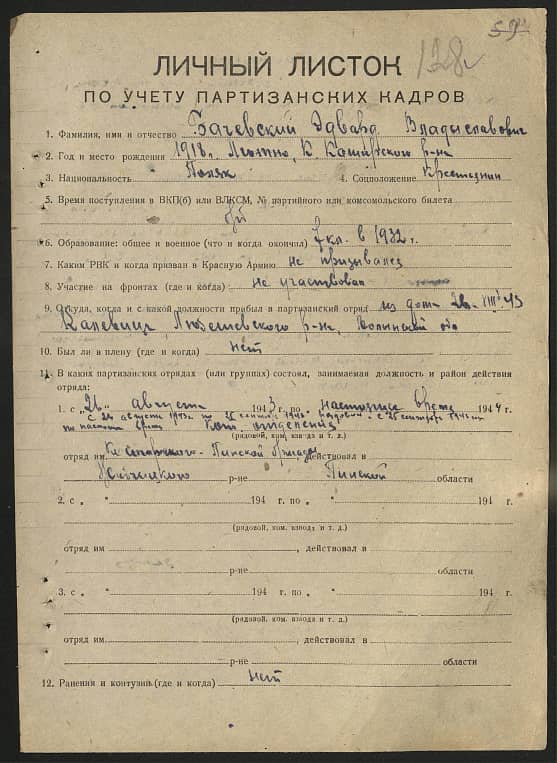 128
ЛИЧНЫЙ ЛИСТОК
ПО УЧЕТУ ПАРТИЗАНСКИХ КАДРОВ
1. Фамилия, имя и отчество Бачевский Эдвард Владыславович
2. Год и место рождения 1918г. К. Каширского р-на
3. Национальность Поляк 4. Соцположение Крестянин
5. Время поступления в ВКП(б) или ВЛКСМ, № партийного или комсомольского билета
б/п
6. Образование: общее и военное (что и когда окончил) 7 кл. в 1932 г.
7. Каким РВК и когда призван в Красную Армию не призывался
8. Участие на фронтах (где и когда) не участвовал
9. Откуда, когда и с какой должности прибыл в партизанский отряд из дома VIII 43
Любешевского р-на, Волынской обл
10. Был ли в плену (где и когда) нет
11. В каких партизанских отрядах (или группах) состоял, занимаемая должность и район действия
отряда:
1. с „ августа 1943 г. по настоящее время 1944 г.
с августа 1943г по 25 сентября 1943г рядовой с 25 сентября 1943г
по настоящ время Ком. отделения
(рядовой, ком. взвода и т. д.)
отряд им Пинской бригады, действовал в
р-не Пинской области
2. с „ " 194 г. по „ " 194 г.
(рядовой, ком. взвода и т. д.)
отряд им , действовал в
р-не области
3. с „ " 194 г. по „ " 194 г.
(рядовой, ком. взвода и т. д.)
отряд им , действовал в
р-не области
12. Ранения и контузии (где и когда) нет